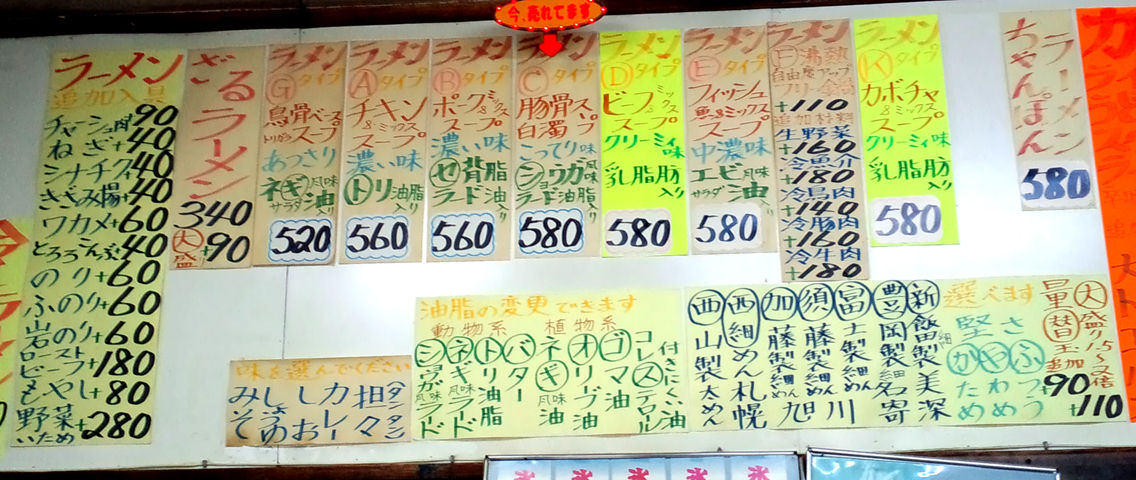 今、売れてます
ラーメン
追加入具
チャーシュ肉 90
ねぎ+40
シナチク40
きざみ揚+40
ワカメ+60
とろろこんぶ40
のり+60
ふのり+60
岩のり+60
ローストビーフ+180
もやし+80
野菜いため+280
ざるラーメン
340
大盛り+90
ラーメン
Gタイプ
鳥骨ベース
トリガラスープ
あっさり
ネギ風味
サラダ油入り
520
ラーメン
Aタイプ
チキン
&ミックス
スープ
濃い味
トリ油脂入り
560
ラーメン
Bタイプ
ポーク&ミックス
スープ
濃い味
セ背脂
ラード油入り
560
ラーメン
Cタイプ
豚骨スープ
白濁
こってり味
ショウガ風味
ラード油入り
580
ラーメン
Dタイプ
ビーフ&ミックス
スープ
クリーミィ味
乳脂肪入り
580
ラーメン
Eタイプ
フィッシュ
魚&ミックス
スープ
中濃味
エビ風味
サラダ油入り
580
ラーメン
F湯熱
自由度アップ
フリー
+110
追加材料
生野菜
+160
冷魚介
+180
冷鳥肉
+140
冷豚肉
+160
冷牛肉
+180
ラーメン
Kタイプ
カボチャ
&ミックス
スープ
クリーミィ味
乳脂肪入り
580
ラーメン
ちゃんぽん
580
味を選んでください
みそ
しょうゆ
しお
カレー
担々
タンタン
油脂の変更できます
動物系 植物系
ショウガ風味ラード
ネギ風味ラード
トリ油脂
バター
ネギ風味油
オリーブ油
ゴマ油
コレステロール
付きにくい油
西山製太めん
西細めん札幌
加藤製細めん旭
須藤製細めん川
富士製細めん
豊岡製名寄
新飯田製美深
選べます
堅さ
かため
やわめ
ふつう
大盛り1.5〜2倍
替玉追加
+90
+110